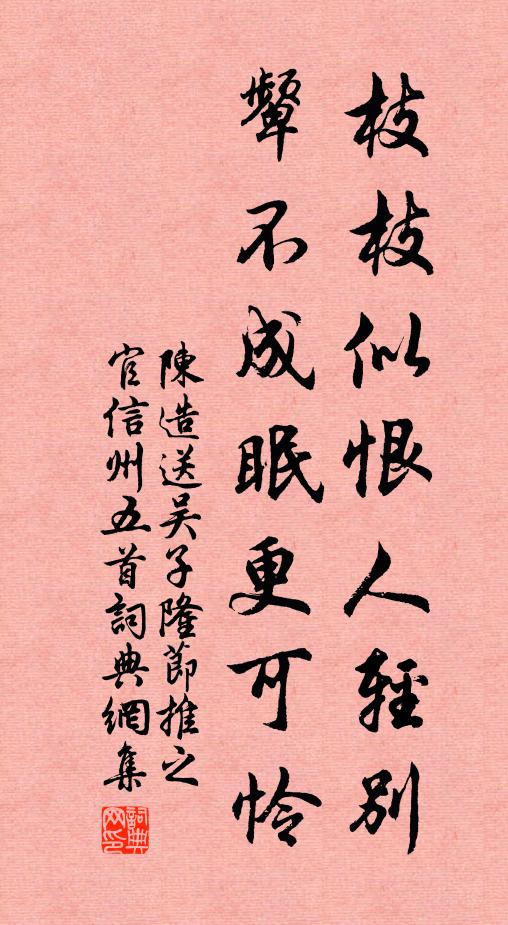 枝枝似恨人輕別
顰不成眠更可怜
陳造送吴子隆節推之
官信州五首詞典網集
詞典网印